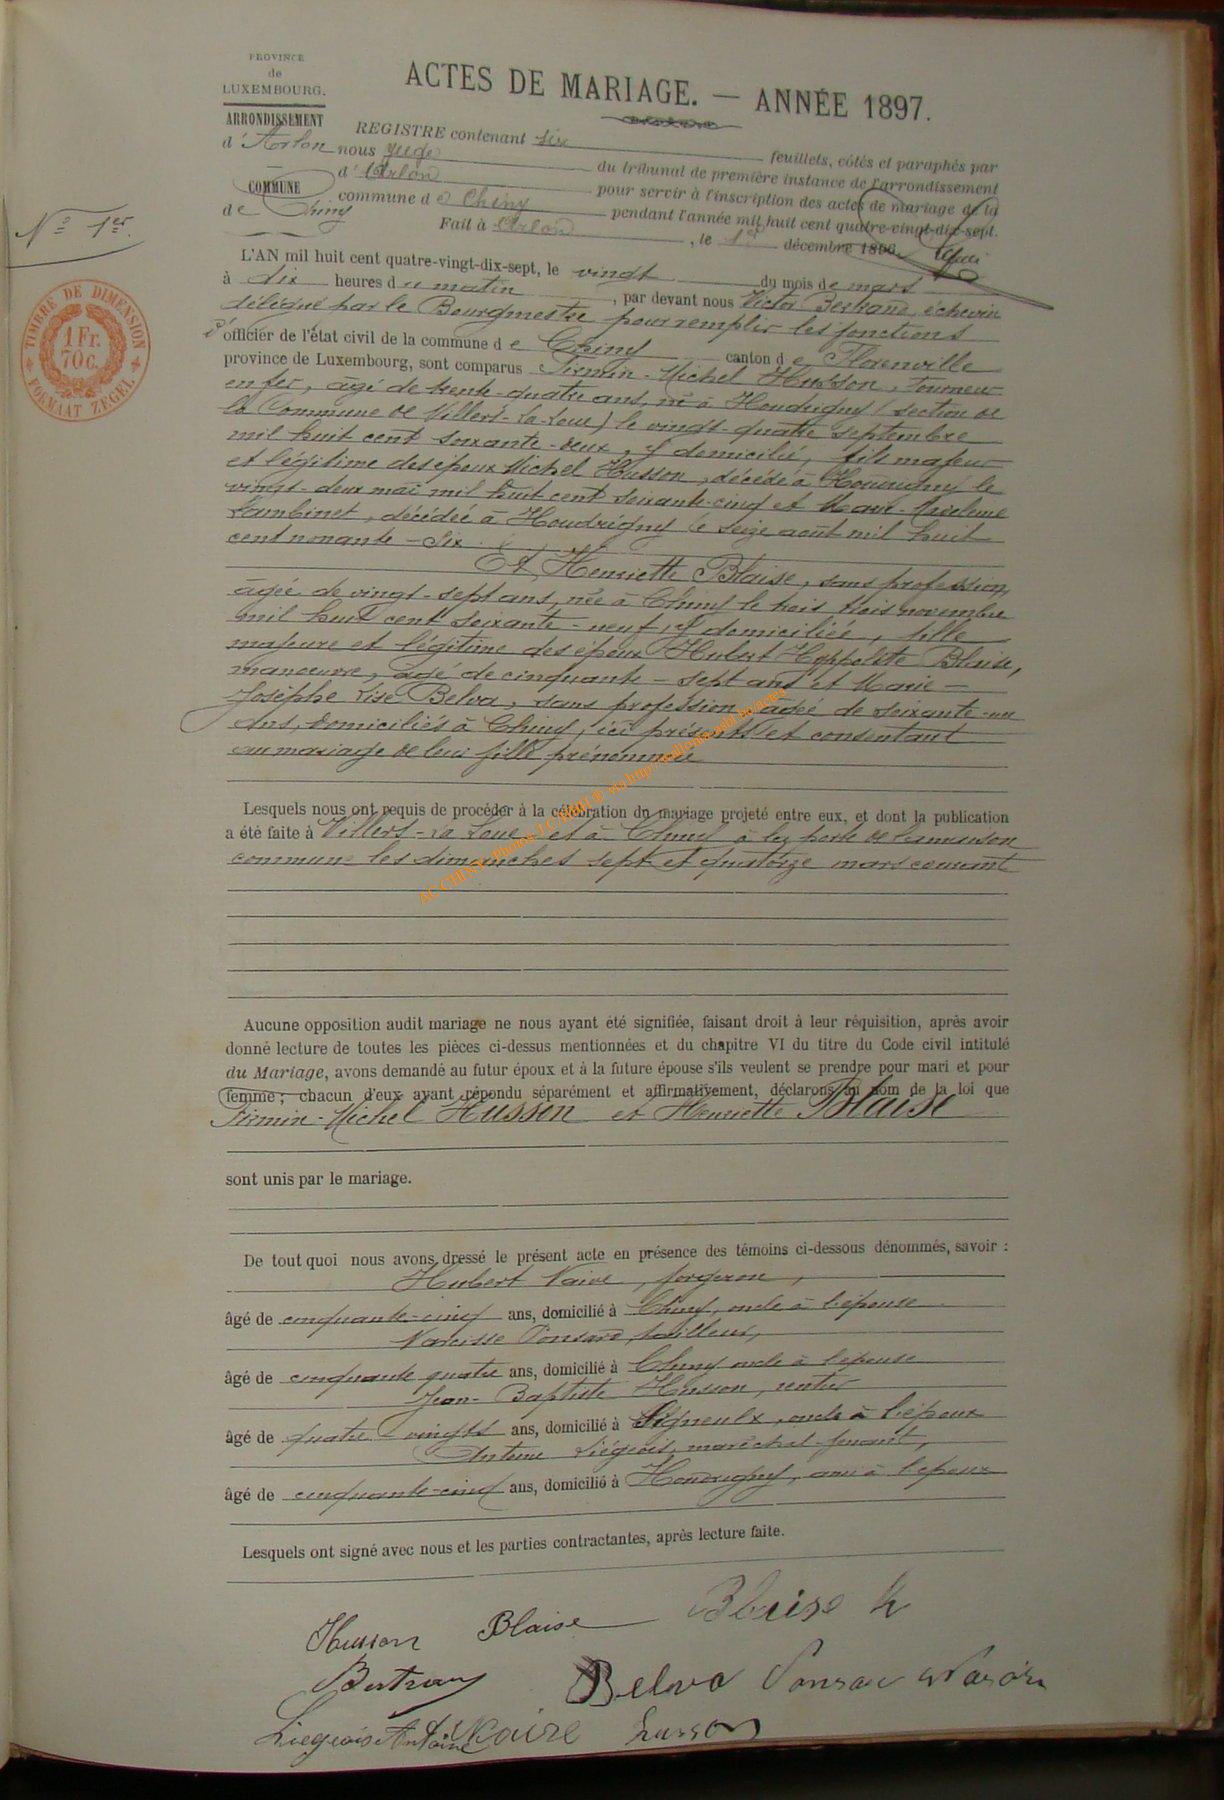 PROVINCE
de
LUXEMBOURG.
ARRONDISSEMENT
d'Arlon
COMMUNE
de Chiny
N° 1er.
TIMBRE DE DIMENSION
1 Fr.
70c.
FORMAAT ZEGEL
ACTES DE MARIAGE. — ANNÉE 1897.
REGISTRE contenant six feuillets, côtés et paraphés par
nous juge du tribunal de première instance de l'arrondissement
d'Arlon pour servir à l'inscription des actes de mariage de la
commune de Chiny pendant l'année mil huit cent quatre-vingt-dix-sept.
Fait à Arlon, le décembre 1896.
L'AN mil huit cent quatre-vingt-dix-sept, le vingt du mois de mars
à dix heures du matin, par devant nous Victor Bertrand, échevin
délégué par le Bourgmestre pour remplir les fonctions
d'officier de l'état civil de la commune de Chiny canton de Florenville
province de Luxembourg, sont comparus Firmin-Michel Husson, tourneur
en fer, âgé de trente-quatre ans, né à Houdrigny (section de
la Commune de Villers-la-Loue) le vingt-quatre septembre
mil huit cent soixante-deux, y domicilié, fils majeur
et légitime des époux Michel Husson, décédé à Houdrigny le
vingt-deux mai mil huit cent soixante-cinq et Marie-
Lambinet, décédée à Houdrigny le seize août mil huit
cent nonante-six.
Et Henriette Blaise, sans profession,
âgée de vingt-sept ans, née à Chiny le trois novembre
mil huit cent soixante-neuf, y domiciliée, fille
majeure et légitime des époux Hubert Hyppolite Blaise,
manœuvre, âgé de cinquante-sept ans et Marie-
Josèphe Lise Belva, sans profession, âgée de soixante-un
ans, domiciliés à Chiny, ici présents et consentant
au mariage de leur fille prénommée
Lesquels nous ont requis de procéder à la célébration du mariage projeté entre eux, et dont la publication
a été faite à Villers-la-Loue et à Chiny à la porte de la maison
commune les dimanches sept et quatorze mars courant
Aucune opposition audit mariage ne nous ayant été signifiée, faisant droit à leur réquisition, après avoir
donné lecture de toutes les pièces ci-dessus mentionnées et du chapitre VI du titre du Code civil intitulé
du Mariage, avons demandé au futur époux et à la future épouse s'ils veulent se prendre pour mari et pour
femme; chacun d'eux ayant répondu séparément et affirmativement, déclarons au nom de la loi que
Firmin-Michel Husson et Henriette Blaise
sont unis par le mariage.
De tout quoi nous avons dressé le présent acte en présence des témoins ci-dessous dénommés, savoir :
Hubert Naive, forgeron,
âgé de cinquante-cinq ans, domicilié à Chiny, oncle à l'épouse
Narcisse Ponsard, tailleur,
âgé de cinquante quatre ans, domicilié à Chiny oncle à l'épouse
Jean-Baptiste Husson, rentier
âgé de quatre vingts ans, domicilié à Signeulx, oncle à l'époux
Antoine Liégeois, maréchal-ferrant,
âgé de cinquante-cinq ans, domicilié à Houdrigny, ami à l'époux
Lesquels ont signé avec nous et les parties contractantes, après lecture faite.
Husson Blaise Blaise h
Bertrand Belva Ponsar
Liegeois Antoine Naire husson
AC CHINY